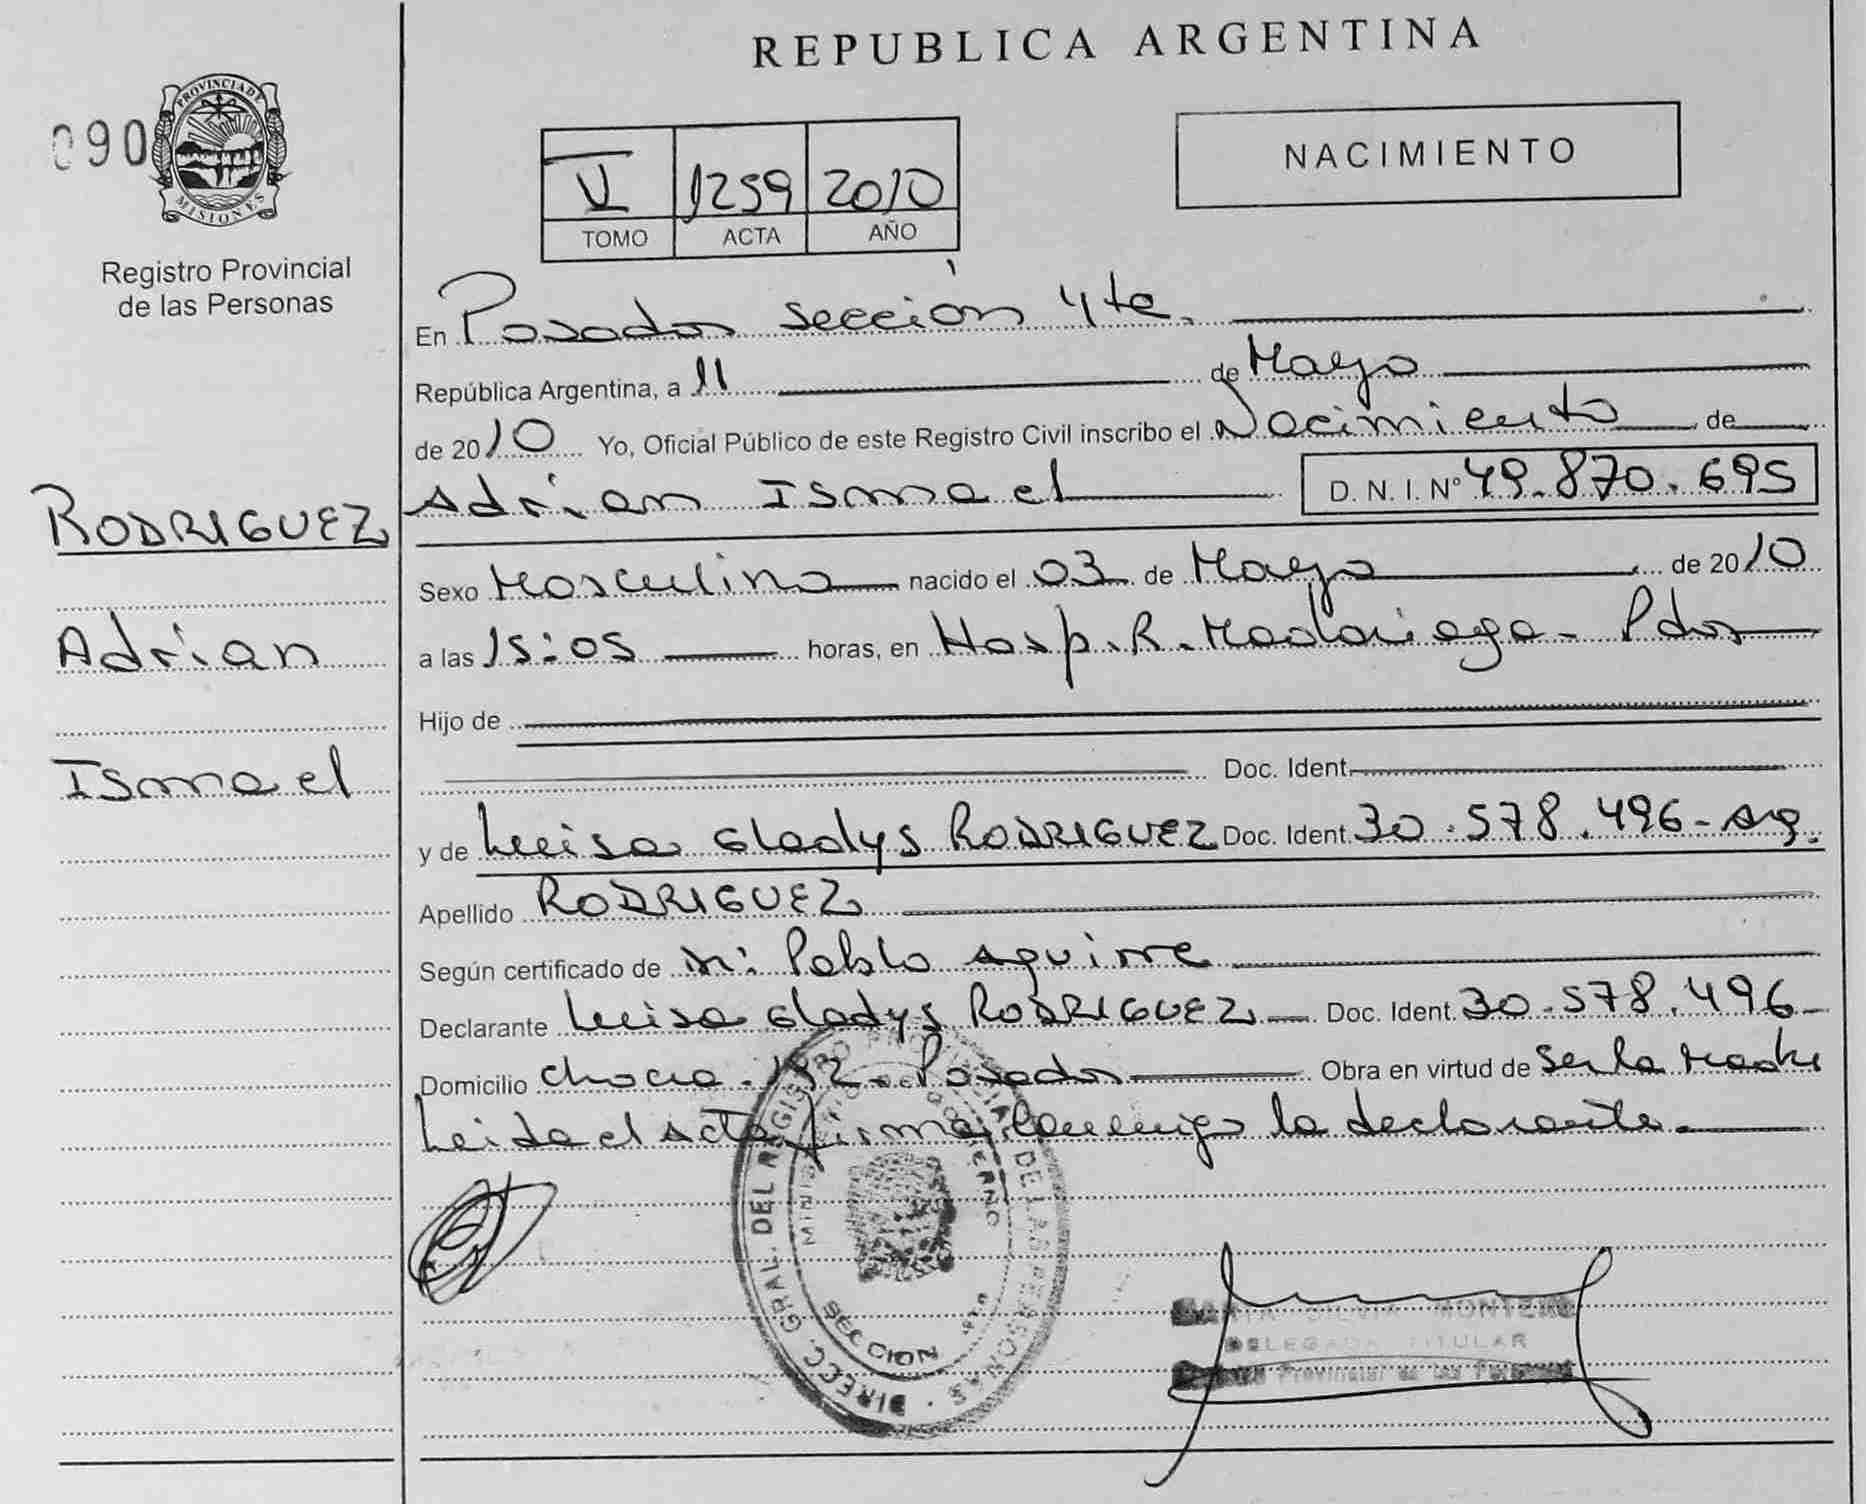 REPUBLICA ARGENTINA
090
PROVINCIA DE
MISIONES
Registro Provincial
de las Personas
V 1259 2010
TOMO ACTA AÑO
NACIMIENTO
En Posadas sección 4ta.
República Argentina, a 11 de Mayo
de 2010 Yo, Oficial Público de este Registro Civil inscribo el Nacimiento de
Adrian Ismael D. N. I. Nº 49.870.695
RODRIGUEZ
Adrian
Ismael
Sexo Masculino nacido el 03 de Mayo de 2010
a las 15:05 horas, en Hosp. R. Madariaga - Pdas
Hijo de
Doc. Ident.
y de Luisa Gladys RODRIGUEZ Doc. Ident. 30.578.496 - Arg.
Apellido RODRIGUEZ
Según certificado de Pablo Aguirre
Declarante Luisa Gladys RODRIGUEZ Doc. Ident. 30.578.496
Domicilio Posadas Obra en virtud de Ser la Madre
Leida el Acta firma conmigo la declarante.
DIRECC. GRAL. DEL REGISTRO PROVINCIAL DE LAS PERSONAS
GOBIERNO
SECCION 4ta
MONTERO
DELEGADA TITULAR
Provincial de las Personas